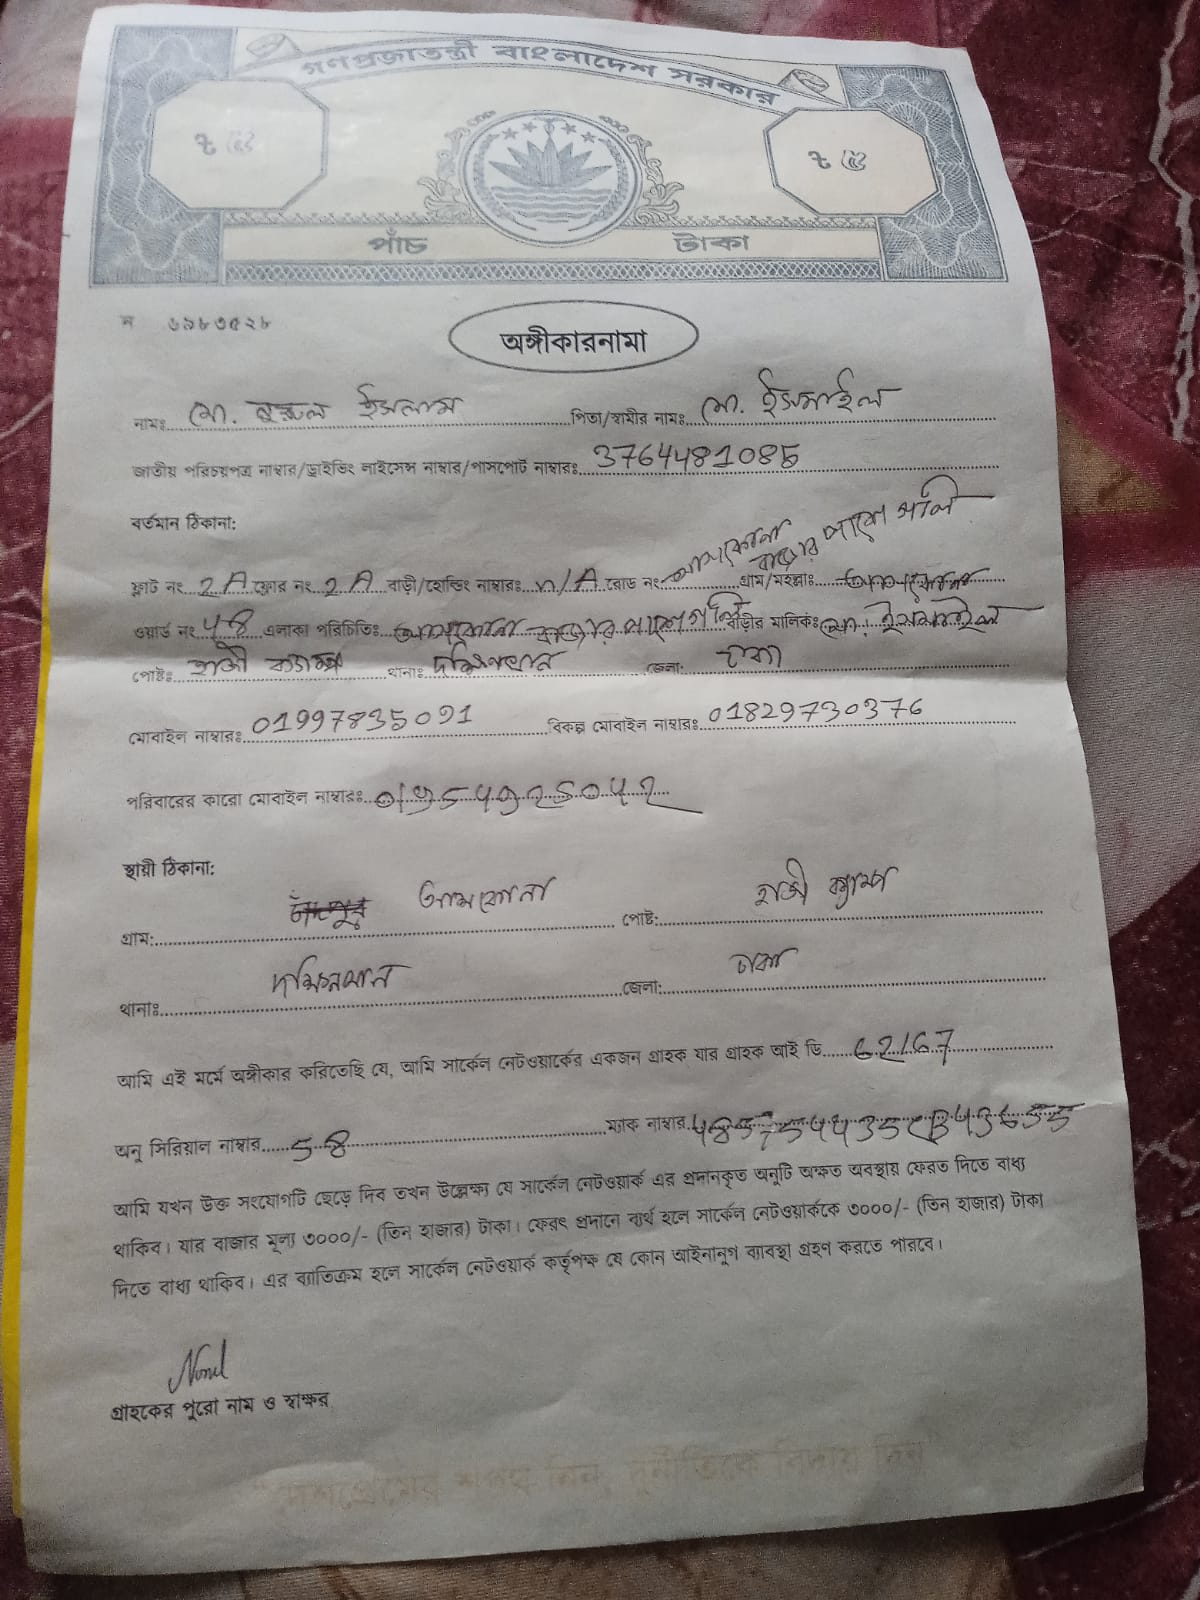 গণপ্রজাতন্ত্রী বাংলাদেশ সরকার
৳ ৫ ৳ ৫
পাঁচ টাকা
ন ৬৯৮৩৫২৮
অঙ্গীকারনামা
নামঃ মো. নুরুল ইসলাম পিতা/স্বামীর নামঃ মো. ইসমাইল
জাতীয় পরিচয়পত্র নাম্বার/ড্রাইভিং লাইসেন্স নাম্বার/পাসপোর্ট নাম্বারঃ 3764481085
বর্তমান ঠিকানা:
ফ্লাট নং 2A ফ্লোর নং 2A বাড়ী/হোল্ডিং নাম্বারঃ n/A রোড নং আশকোনা বাজার পাশে গলি গ্রাম/মহল্লাঃ আশকোনা
ওয়ার্ড নং এলাকা পরিচিতিঃ আশকোনা বাজার পাশে গলি বাড়ীর মালিকঃ মো. ইসমাইল
পোষ্টঃ হাজী ক্যাম্প থানাঃ দক্ষিণখান জেলা: ঢাকা
মোবাইল নাম্বারঃ 01997835091 বিকল্প মোবাইল নাম্বারঃ 01829730376
পরিবারের কারো মোবাইল নাম্বারঃ
স্থায়ী ঠিকানা:
গ্রাম: আশকোনা পোষ্ট: হাজী ক্যাম্প
থানাঃ দক্ষিনখান জেলা: ঢাকা
আমি এই মর্মে অঙ্গীকার করিতেছি যে, আমি সার্কেল নেটওয়ার্কের একজন গ্রাহক যার গ্রাহক আই ডি 62167
অনু সিরিয়াল নাম্বার 58 ম্যাক নাম্বার
আমি যখন উক্ত সংযোগটি ছেড়ে দিব তখন উল্লেক্ষ্য যে সার্কেল নেটওয়ার্ক এর প্রদানকৃত অনুটি অক্ষত অবস্থায় ফেরত দিতে বাধ্য
থাকিব। যার বাজার মূল্য ৩০০০/- (তিন হাজার) টাকা। ফেরৎ প্রদানে ব্যর্থ হলে সার্কেল নেটওয়ার্ককে ৩০০০/- (তিন হাজার) টাকা
দিতে বাধ্য থাকিব। এর ব্যাতিক্রম হলে সার্কেল নেটওয়ার্ক কর্তৃপক্ষ যে কোন আইনানুগ ব্যাবস্থা গ্রহণ করতে পারবে।
গ্রাহকের পুরো নাম ও স্বাক্ষর
"দেশপ্রেমের শপথ নিন, দুর্নীতিকে বিদায় দিন"